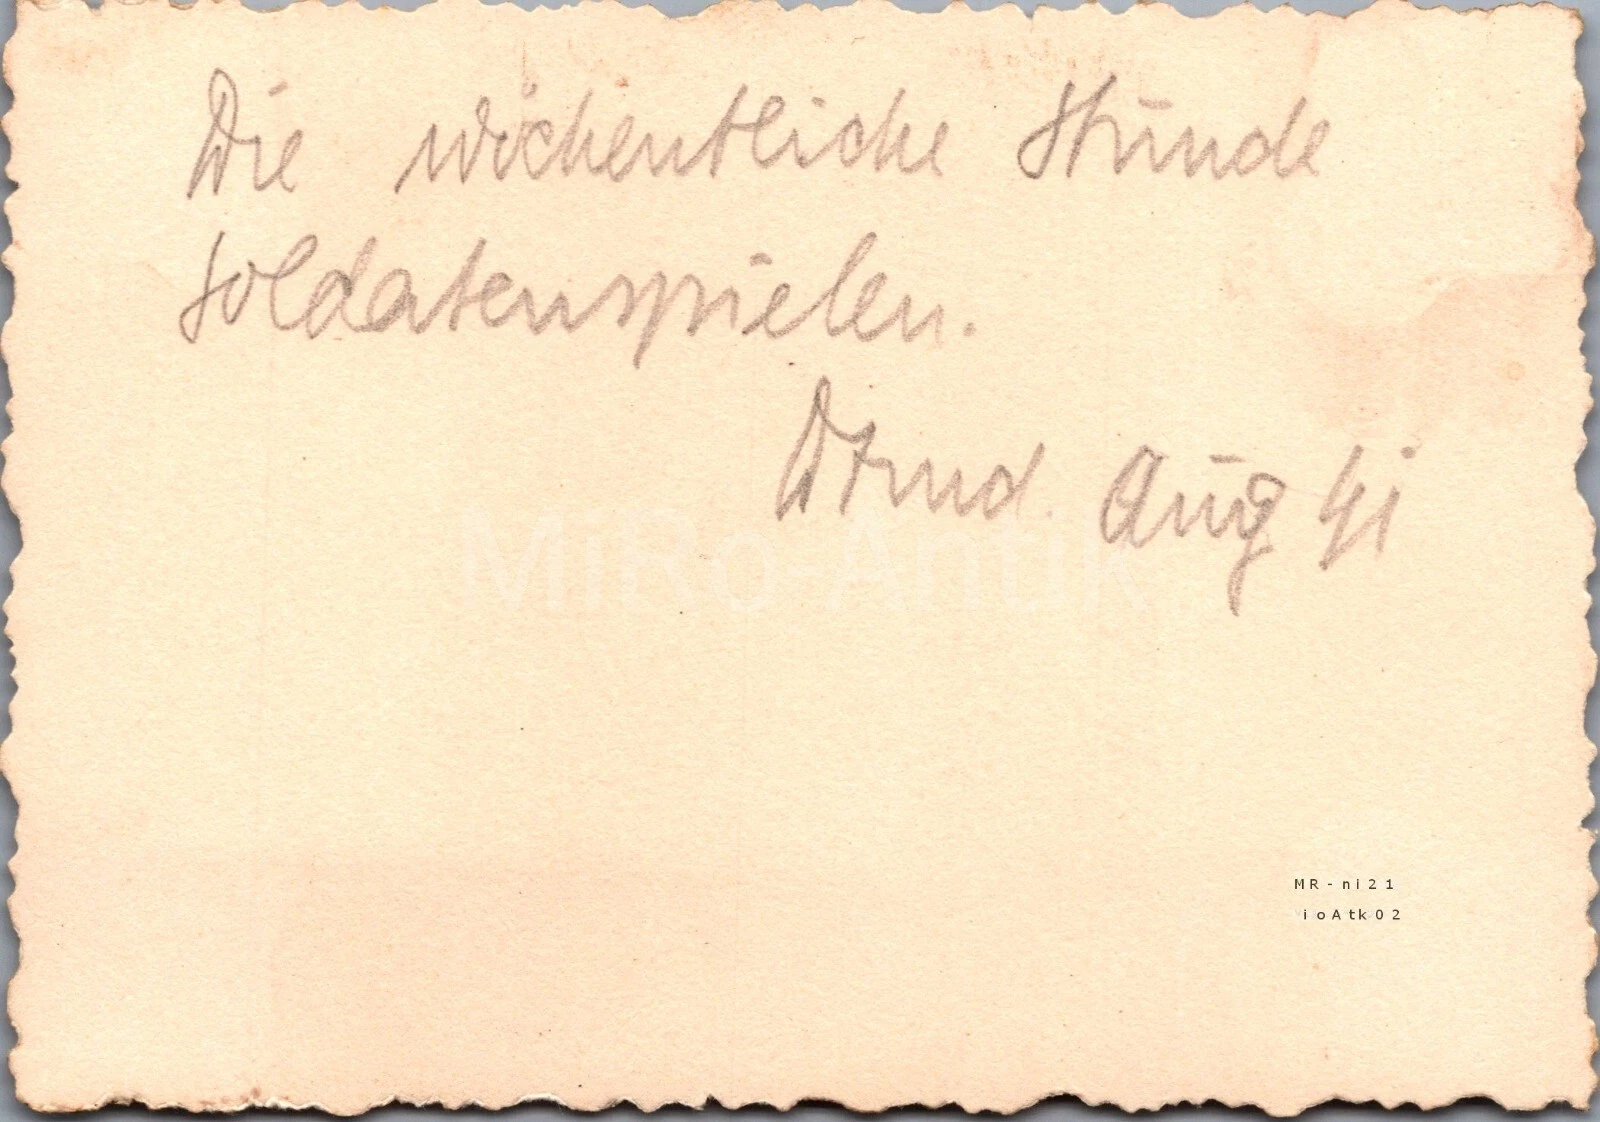 Die wöchentliche Stunde
soldatenspielen.
Dtmd. Aug 41
MiRo-Antik
MR-ni21
ioAtk02